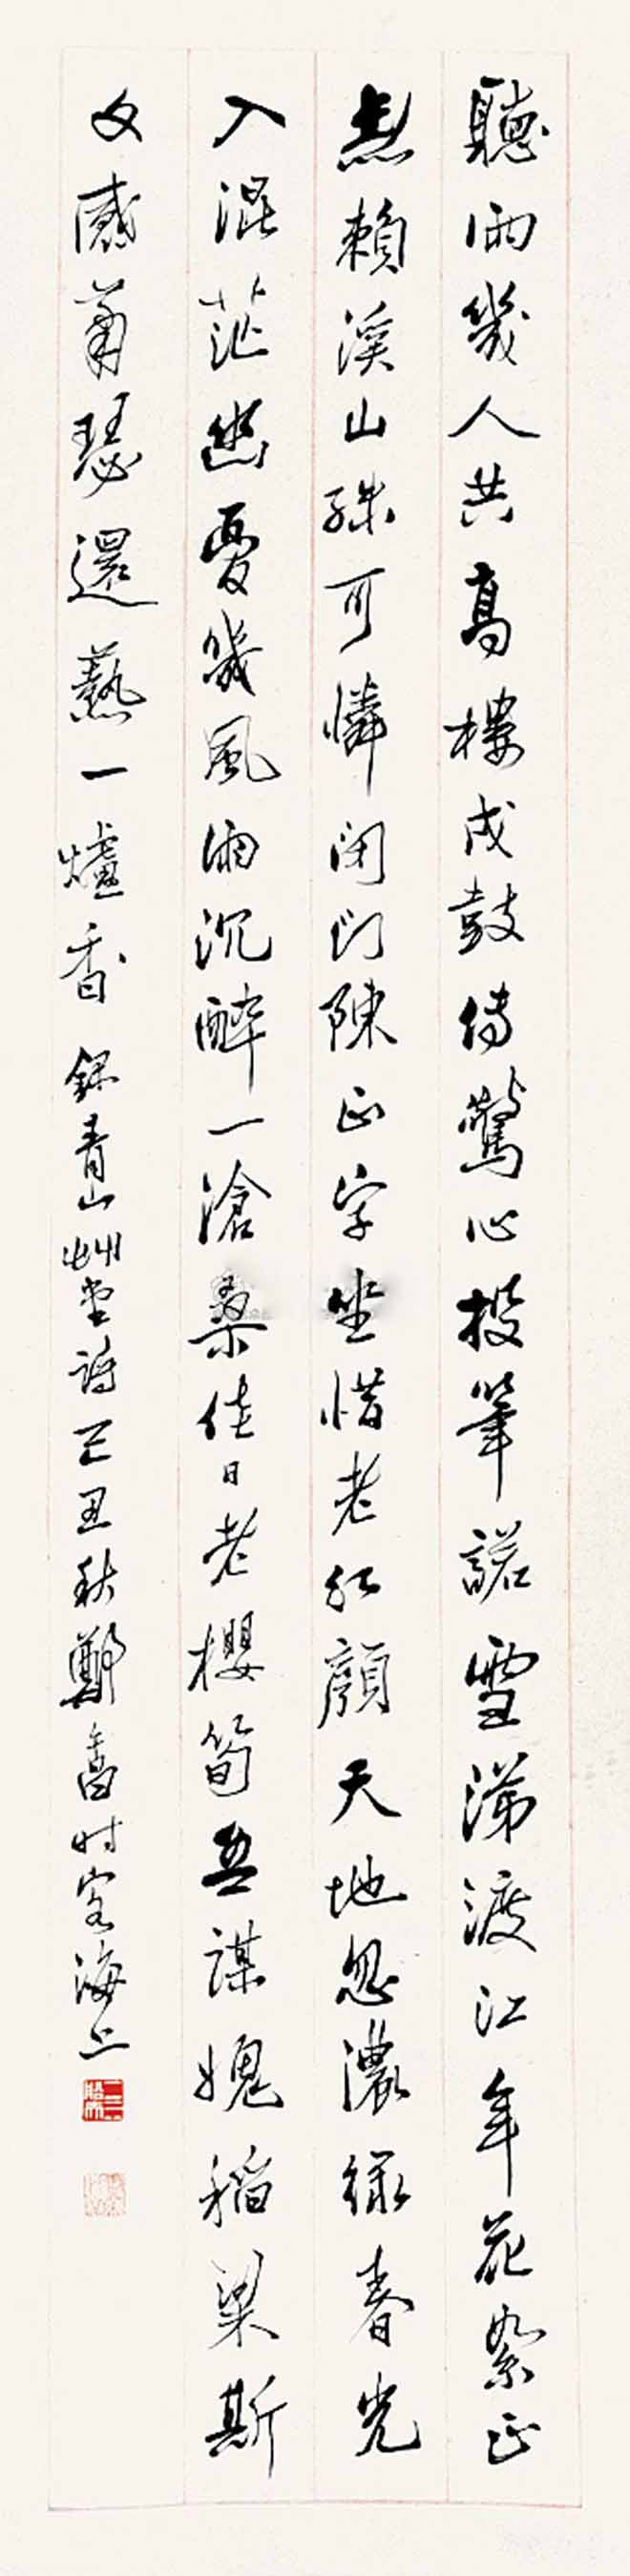 聽雨幾人共高樓戍鼓傳驚心投筆諾雪涕渡江年花絮正
無賴溪山殊可憐閉門陳正字坐惜老紅顏天地忽濃綠春光
入混茫幽憂幾風雨沉醉一滄桑佳日老櫻筍無謀媿稻粱斯
文感蕭瑟還爇一爐香 錄青山艸堂詩己丑秋鄭時客海上